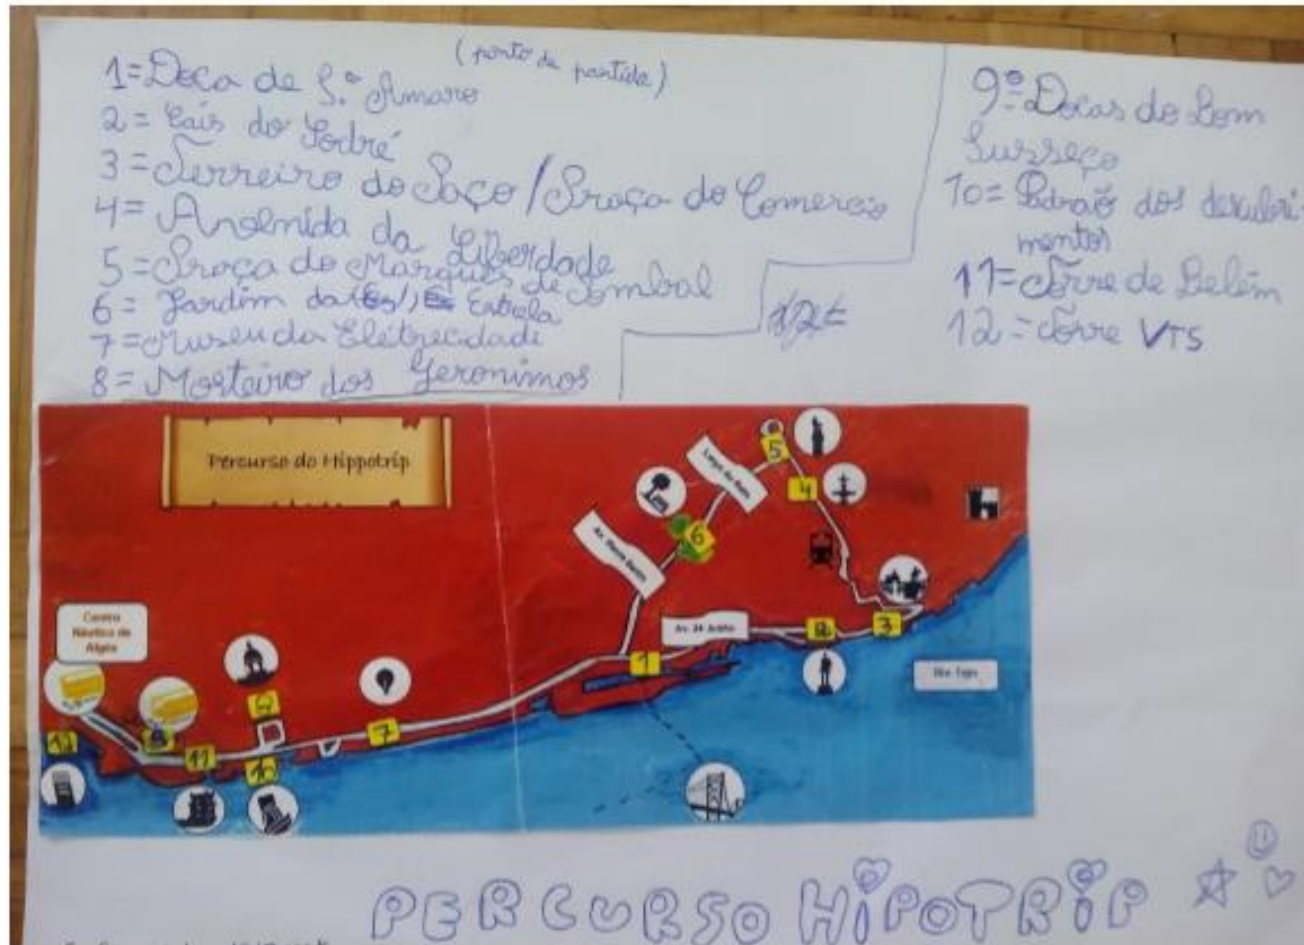 (ponto de partida)
1=Doca de S.º Amaro
2= Cais do Sodré
3=Terreiro do Paço/Praça do Comercio
4= Avenida da Liberdade
5=Praça do Marquês de Pombal
6= Jardim da Estrela
7=Museu da Eletrecidade
8= Mosteiro dos Jeronimos
12=
9º=Docas do Bom
Susseço
10= Padrão dos descubri-
mentos
11=Torre de Belém
12=Torre VTS
Percurso do Hippotrip
5
4
6
Centro
Náutico de
Algés
Av. 24 Julho
1
2
3
Rio Tejo
7
11
10
12
PERCURSO HiPOTRiP